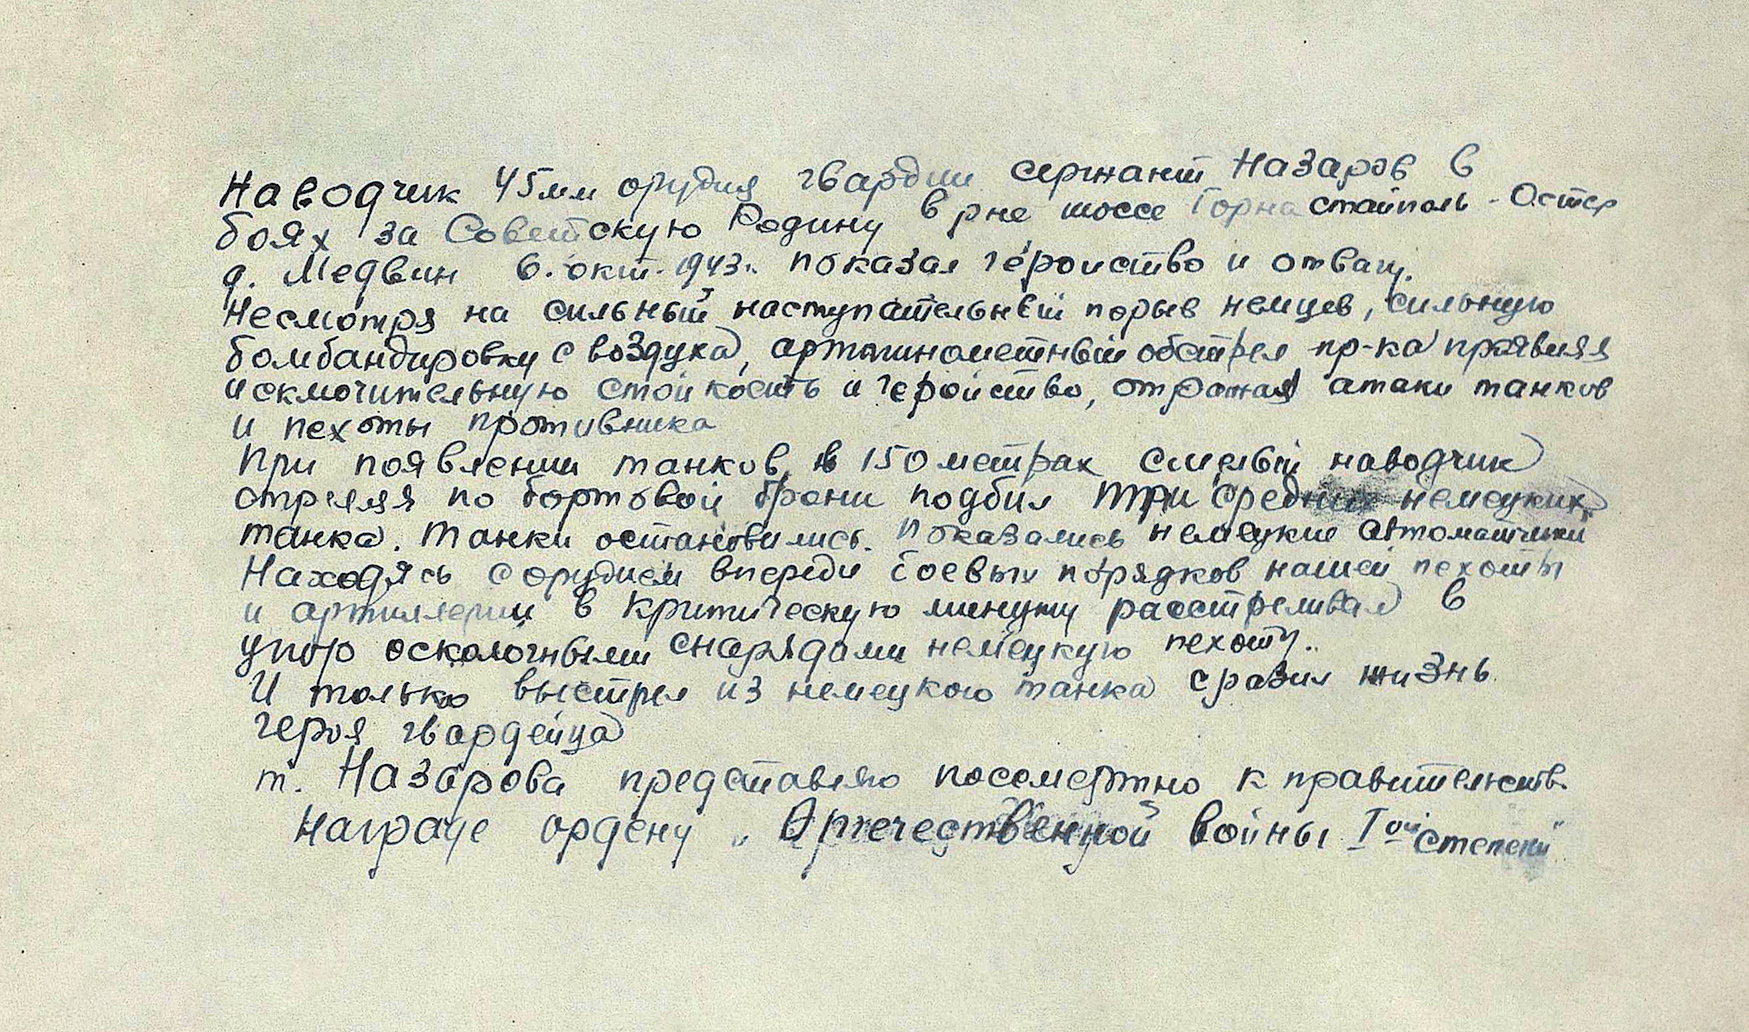 Наводчик 45мм орудия гвардии сержант Назаров в
боях за Советскую Родину в рне шоссе Горностайполь - Остер
д. Медвин 6. окт. 1943г. показал геройство и отвагу.
Несмотря на сильный наступательный порыв немцев, сильную
бомбандировку с воздуха, артминометный обстрел пр-ка проявляя
исключительную стойкость и геройство, отражал атаки танков
и пехоты противника
При появлении танков в 150 метрах смелый наводчик
стреляя по бортовой брони подбил три средних немецких
танка. Танки остановились. Показались немецкие автоматчики
Находясь с орудием впереди боевых порядков нашей пехоты
и артиллерии в критическую минуту расстреливал в
упор осколочными снарядами немецкую пехоту.
И только выстрел из немецкого танка сразил жизнь
героя гвардейца
т. Назарова представляю посмертно к правительств.
награде ордену „Отечественной войны I ой степени"